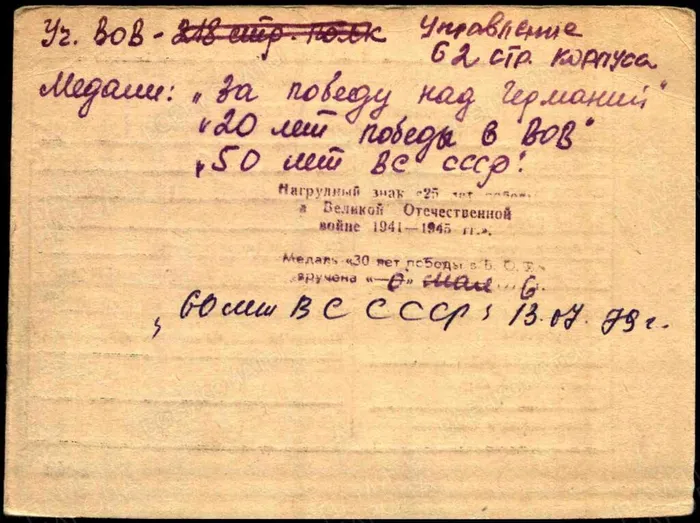 Уч. ВОВ - 218 стр. полк Управление
62 стр. корпуса
Медали: „За победу над Германией"
„20 лет победы в ВОВ"
„50 лет ВС СССР".
Нагрудный знак «25 лет победы
в Великой Отечественной
войне 1941—1945 гг.».
Медаль «30 лет победы в В. О. В.»
вручена «—6» мая
„60 лет ВС СССР" 13.07.79 г.